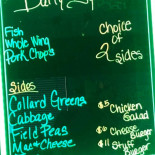 Daily
Fish
Whole Wing
Pork Chops
Choice
of
2 sides
Sides
Collard Greens
Cabbage
Field Peas
Mac & Cheese
$5 Chicken
Salad
$6 Cheese
Burger
$11 Stuff
Burger